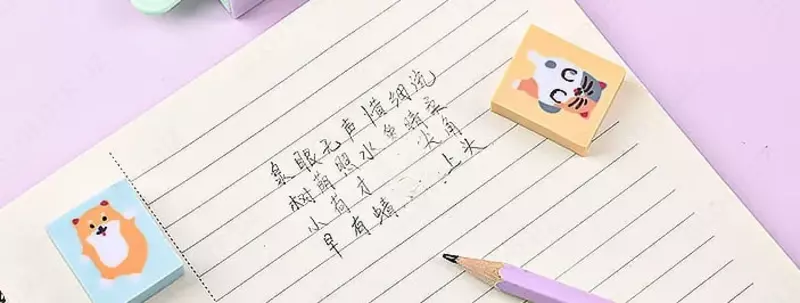 泉眼无声惜细流
树荫照水鱼晴柔
小荷才 尖角
早有蜻 上头